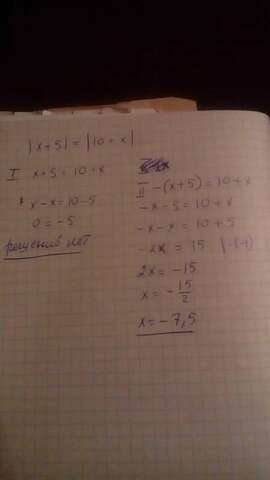 |x+5| = |10+x|
I x+5 = 10+x
x-x = 10-5
0 = -5
решений нет
II -(x+5) = 10+x
-x-5 = 10+x
-x-x = 10+5
-2x = 15 |·(-1)
2x = -15
x = -15/2
x = -7,5